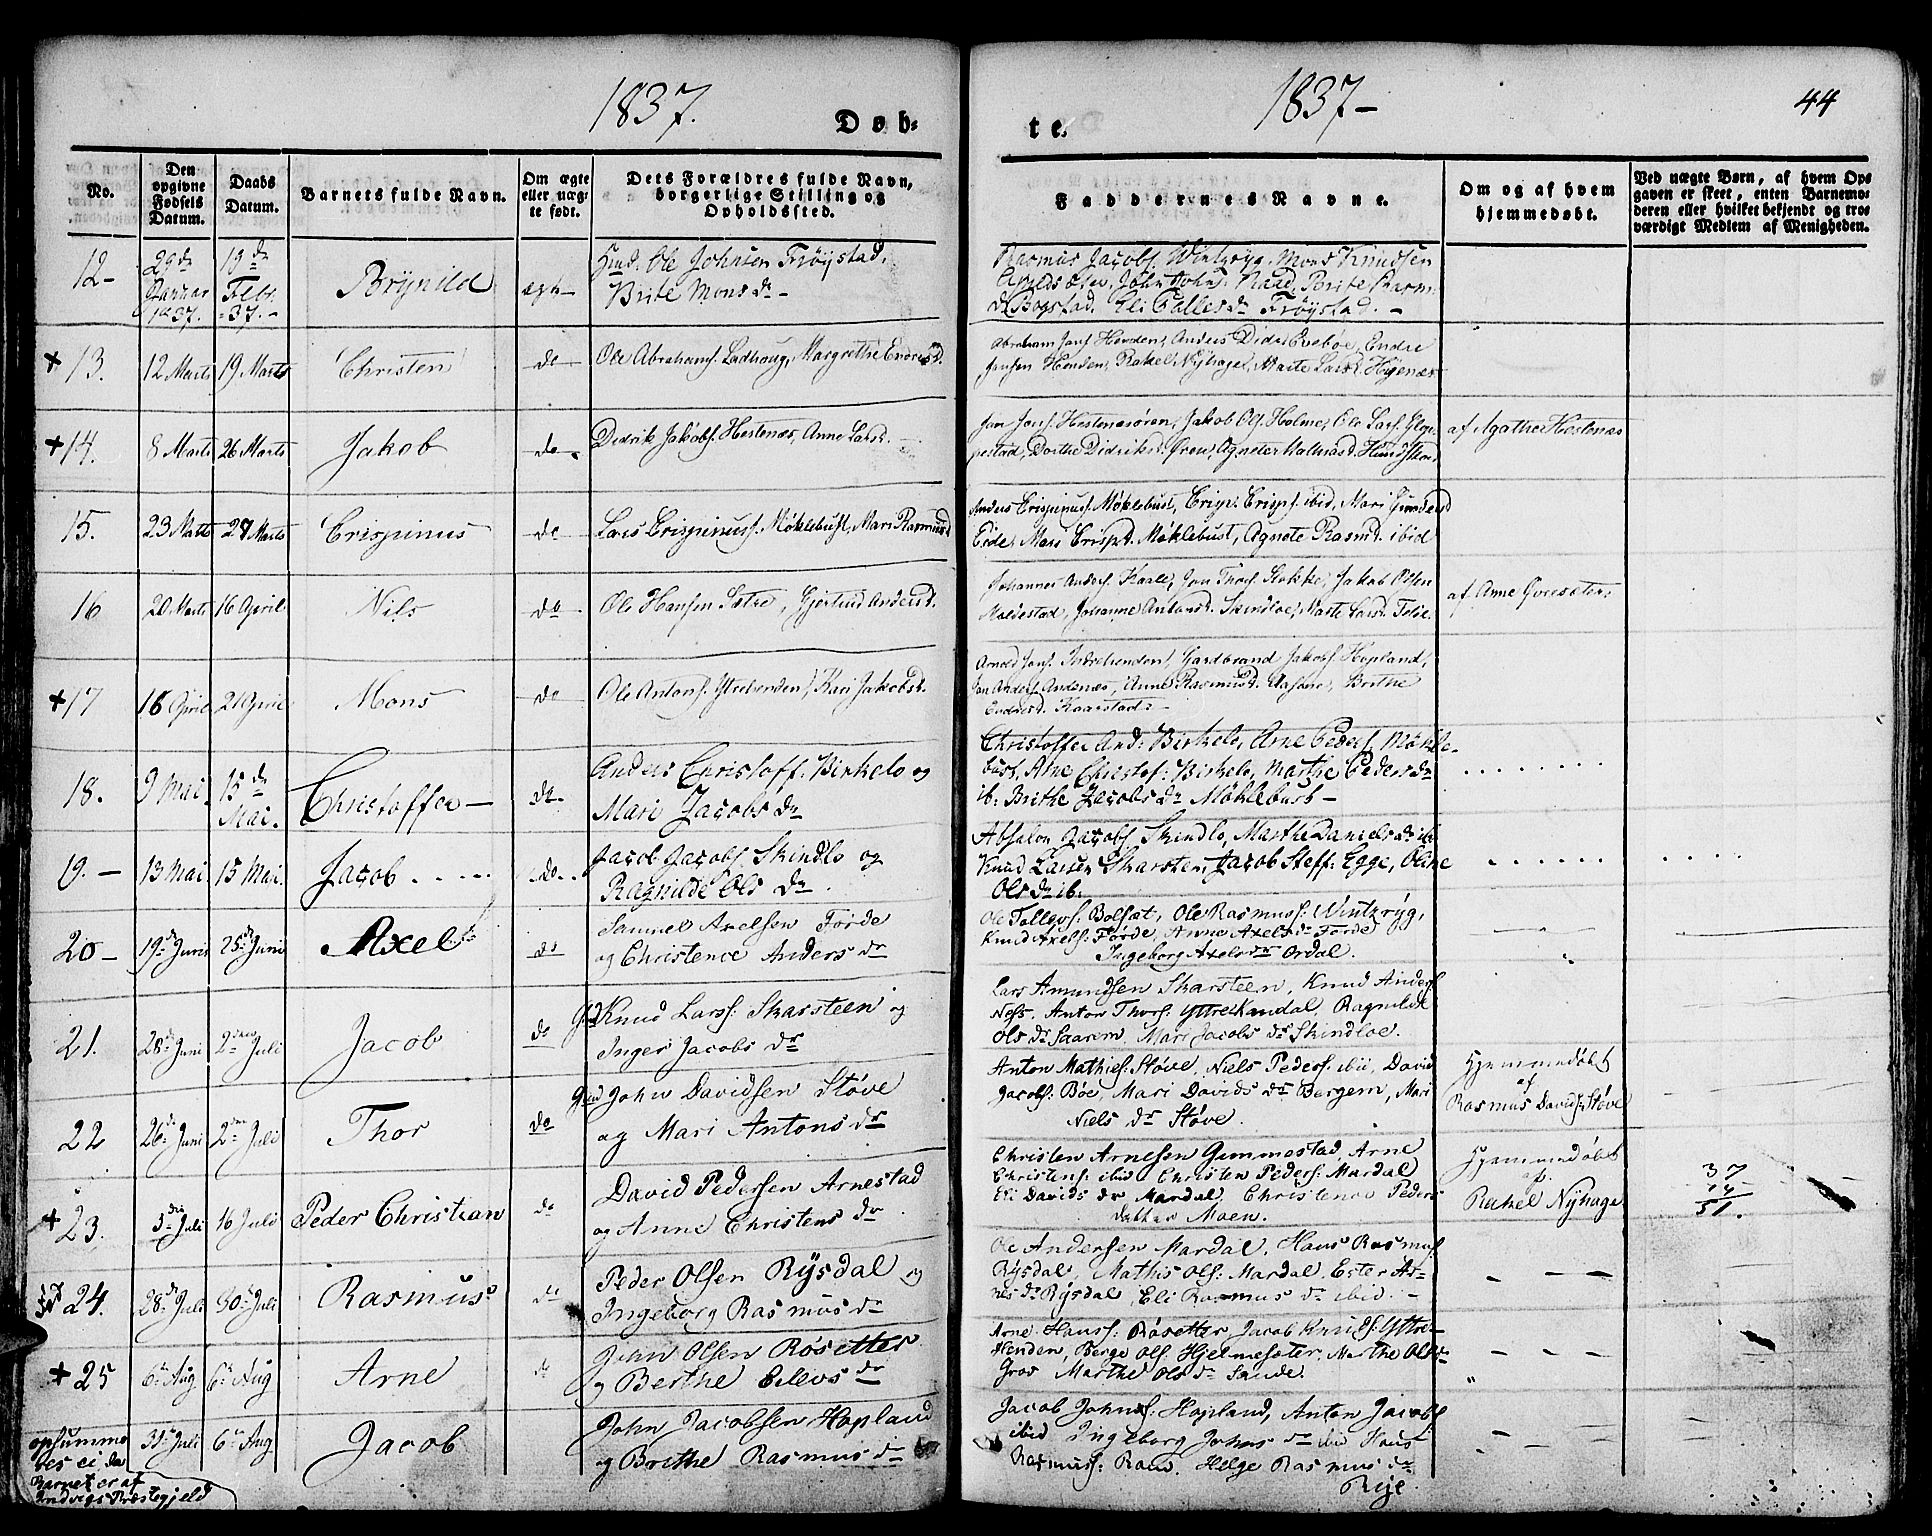 1837.
Døb-
te.
1837-
44
No.
Den opgivne Fødsels Datum.
Daabs Datum.
Barnets fulde Navn.
Om ægte eller uægte født.
Dets Forældres fulde Navn, borgerlige Stilling og Opholdssted.
Faddernes Navne.
Om og af hvem hjemmedøbt.
Ved uægte Børn, af hvem Opgaven er skeet, enten Barnemoderen eller hvilket bekjendt og troværdigt Medlem af Menigheden.
12-
29de Januar 1837.
19de Febr. 37.-
Brynild
ægte
Huusmd. Ole Johnsen Frøystad.
Brite Mons dr -
Rasmus Jacobs. Wintryg, Mons Knudsen
Brite Rasm.
dr Bogstad. Eli Palles dr Frøystad. -
+ 13.
12 Marts
19 Marts
Christen
do
Ole Abrahams. Ladhoug, Margrethe Endresd.
Abraham Jons. Henden, Anders Didr. Evebøe, Endre
Jensen Henden, Rakel Nyhage, Marte Larsd. Hyenæs
+ 14.
8 Marts
26 Marts
Jakob
do.
Didrik Jakobs. Hestenæs, Anne Larsd.
Jon Jons. Hestenesøren, Jakob Ols. Holme, Ole Lars. Glop-
pestad, Dorthe Didriksd. Øren, Agnete Halmasd. Hundskor.
af Agathe Hestenæs
15.
23 Marts
27 Marts
Crispinus
do
Lars Crispinuss. Møklebust, Mari Rasmusd
Anders Crispinuss. Møklebust, Crisp. Crisps. ibid, Mari Gundersd
Eide, Mari Crispd. Møklebust, Agnete Rasmd. ibid
16
20 Marts
16 April
Nils
do
Ole Hansen Sætre, Gjertrud Andersd.
Johannes Anders. Kaale, Jon Thors. Stokke, Jakob Olsen
Moldestad, Johanne Antonsd. Skindloe, Marte Larsd. Felde.
af Anne Qvieseter
+ 17
18 April
21 April
Mons
do
Ole Antons. Ytrehenden, Kari Jakobsd.
Arnold Jons. Indrehenden, Gardbrand Jakobs. Hopland,
Jon Anders. Andenæs, Anne Rasmusd. Aasane, Brithe
Endresd. Kaarstad. -
18.
9 Mai.
15de Mai.
Christoffer -
do.
Anders Christoff: Birkelo og
Mari Jacobs dr
Christoffer And: Birkelo, Arne Peders. Møkle-
bust, Arne Christof: Birkelo, Marthe Peders dr
ib: Brithe Jacobs dr Møklebust -
19. -
13 Mai
15 Mai.
Jacob . . . .
do.
Jacob Jacobs. Skindlo og
Ragnilde Ols dr.
Absalon Jacobs. Skindlo, Marthe Daniels dr ib:
Knud Larsen Skarsten, Jacob Steff: Egge, Oline
Ols dr ib.
20-
19de Juni
25de Juni
Axel
do
Samuel Axelsen Førde
og Christence Anders dr
Ole Tollgos: Bolsæt, Ole Rasmuss: Wintryg,
Knud Axels: Førde, Anne Axels dr Førde
Ingeborg Axels dr Ordal.
21.
28de Juni
2den Juli
Jacob
do
Gd Knud Larss: Skarsteen og
Inger Jacobs dr
Lars Amundsen Skarsteen, Knud Anders.
Ness. Anton Thors: Yttrekandal, Ragnilde
Ols dr Saarem, Mari Jacobs dr Skindloe.
22
26de Juni
2den Juli
Thor
do
Gmd John Davidsen Støve
og Mari Antons dr
Anton Mathies: Støve, Niels Peders: ibid, David
Jacobs: Böe, Mari Davids dr Bergem, Mari
Niels dr Støve.
Hjemmedøbt
af
Rasmus Davids: Støve
+ 23.
3die Juli
16 Juli
Peder Christian
do
David Pedersen Arnestad
og Anne Christens dr.
Christen Arnesen Gimmestad, Arne
Christens: ibid Christen Peders: Mardal
Eli Davids dr Mardal, Christence Peders
datter Moen.
Hjemmedøbt
af.
Rakel Nyhage
37
14
51.
24.
28de Juli
30de Juli
Rasmus
do
Peder Olsen Rysdal og
Ingeborg Rasmus dr
Ole Andersen Mardal, Hans Rasmus.
Rysdal, Mathis Ols: Mardal, Ester Ar-
nes dr Rysdal, Eli Rasmus dr ibid. -
+ 25
6te Aug
6te Aug
Arne
do
John Olsen Røsetter
og Berthe Ellevs dr
Arne Hanss: Røsetter, Jacob Knuds: Yttre-
Henden, Berge Ols: Hjelmesæter, Marthe Ols dr
Gros Marthe Ols dr Sande.
opsummeres ei da
Barnet er af
Indvigs Præstegjeld
31te Juli
6te Aug
Jacob
John Jacobsen Hopland
og Brithe Rasmus dr
Jacob Johns: Hopland, Anton Jacobs.
ibid Ingeborg Johns dr ibid Hans
Rasmuss: Raus. Helge Rasmus dr
Rije.